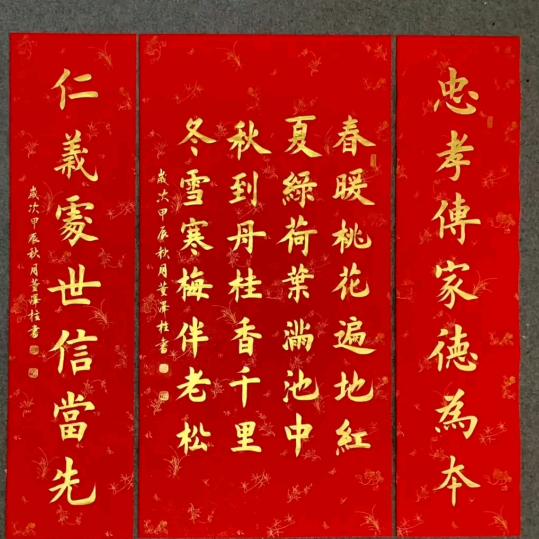 忠孝傳家德為本
春暖桃花遍地紅
夏綠荷葉滿池中
秋到丹桂香千里
冬雪寒梅伴老松
歲次甲辰秋月董澤柱書
仁義處世信當先
歲次甲辰秋月董澤柱書